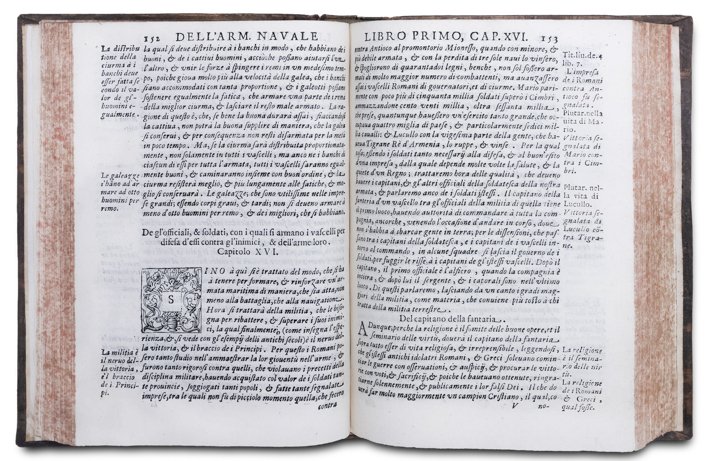 152 DELL'ARM. NAVALE
La distributione della ciurma à i banchi deue esser fatta secondo il valor de gl'huomini egualmente.
la qual si deue distribuire à i banchi in modo, che habbiano de i
buoni, & de i cattiui huomini, acciòche possano aiutarsi l'un
l'altro, & unir le forze à spingere i remi in un medesimo tempo,
poiche gioua molto più alla velocità della galea, che i banchi
siano accommodati con tanta proportione, & i galeotti possano
sostenere egualmente la fatica, che armare una parte de remi
della miglior ciurma, & lasciare il resto male armato. La ragione
di questo è, che, se bene la buona durarà assai, stancādosi
la cattiua, non potrà la buona supplire di maniera, che la galea
si conserui, & per conseguenza non resti disarmata per la metà
in poco tempo. Ma, se la ciurma sarà distribuita proportionatamente,
non solamente in tutti i vascelli, ma anco ne i banchi di
ciascun di essi per tutta l'armata, tutti i vascelli saranno egualmente
buoni, & caminaranno insieme con buon ordine, & la
Le galeazze hāno ad armare ad otto huomini per remo.
ciurma resisterà meglio, & più lungamente alle fatiche, & meglio
si conseruarà. Le galeazze, che sono vtilissime nelle imprese
grandi; essendo corpi graui, & tardi; non si deuono armar à
meno d'otto huomini per remo, & de i migliori, che si habbiano.
De gl'officiali, & soldati, con i quali si armano i vascelli per
difesa d'essi contra gl'inimici, & dell'arme loro.
Capitolo XVI.
SINO à quì s'è trattato del modo, che si hà
à tenere per formare, & rinforzar vn'armata
maritima di maniera, che sia atta, non
meno alla battaglia, che alla nauigatione.
Hora si trattarà della militia, che le bisogna
per ributtare, & superare i suoi inimici,
la qual finalmente, (come insegna l'esperienza,
& si vede con gl'esempij delli antichi secoli) è il neruo della
La militia è il neruo della vittoria, & il braccio de i Principi.
vittoria, & il braccio de i Principi. Per questo i Romani posero
tanto studio nell'ammaestrar la lor giouentù nell'arme, &
furono tanto rigorosi contra quelli, che violauano i precetti della
disciplina militare, hauendo acquistato col valor de i soldati tante
prouincie, soggiogati tanti popoli, & fatte tante segnalate
imprese, tra le quali non fù di piccolo momento quella, che fecero
contra
LIBRO PRIMO, CAP. XVI. 153
contra Antioco al promontorio Mionesso, quando con minore, &
più debile armata, & con la perdita di tre sole naui lo vinsero,
& spogliorono di quarantadoi legni, benche, non sol fossero armati
di molto maggior numero di combattenti, ma auanzassero
Tit. liu. de. 4 lib. 7.
L'impresa de i Romani contra Antioco fu segnalata.
assai i vascelli Romani di gouernatori, et di ciurme. Mario parimente
con poco più di cinquanta millia soldati superò i Cimbri,
ammazzandone cento venti millia, oltra sessanta millia,
che prese, quantunque hauessero vn'esercito tanto grande, che occupaua
Plutar. nella vita di Mario.
Vittoria segnalata di Mario contra i Cimbri.
quattro miglia di paese, & particolarmente sedici millia
caualli: & Lucullo con la vigesima parte della gente, che haueua
Tigrane Rè d'Armenia, lo ruppe, & vinse. Per la qual
cosa, essendo i soldati tanto necessarij alla difesa, & al buon'esito
d'una impresa, dalla quale depende molte volte la salute, & la
quiete d'un Regno, trattaremo hora delle qualità, che deuono
hauere i capitani, & gl'altri officiali della soldatesca della nostra
Plutar. nella vita di Lucullo.
Vittoria segnalata di Lucullo cōtra Tigrane.
armata, & parlaremo anco de i soldati. Il capitano della fantaria
d'un vascello tra gl'officiali della militia di quello tiene il
primo luogo, hauendo autorità di commandare à tutta la compagnia,
ancorche, venendo l'occasione d'andare in corso, doue
non s'habbia à sbarcar gente in terra; per le dissensioni, che passano
tra i capitani della soldatesca, e i capitani de i vascelli intorno
al commando, in alcune squadre si lascia il gouerno de i
soldati, per fuggir le risse, à i capitani de gl'istessi vascelli. Dopò il
capitano, il primo officiale è l'alfiero, quando la compagnia è
intiera, & dopò lui il sergente, & i caporali sono nell'ultimo
luogo. Di questi parlaremo, lasciando da un canto i gradi maggiori
della militia, come materia, che conuiene più tosto à chi
tratta della militia terrestre.
Del capitano della fantaria.
Adunque, perche la religione è il fomite delle buone opere, et il
seminario delle virtù, douerà il capitano della fantaria
La religione è il seminario delle virtù.
sopra tutto esser di vita religiosa, & irreprensibile, leggendosi,
che gl'istessi antichi idolatri Romani, & Greci soleuano cominciare
le guerre con osseruationi, & auspicij, & procurar le vittorie
con voti, & sacrificij, &, poiche le haueuano ottenute, ringratiarne
La religione de i Romani & Greci, qual fosse.
solennemente, & publicamente i lor falsi Dei. Il che douerà
far molto maggiormente vn campion Christiano, il qual, co-
V no-